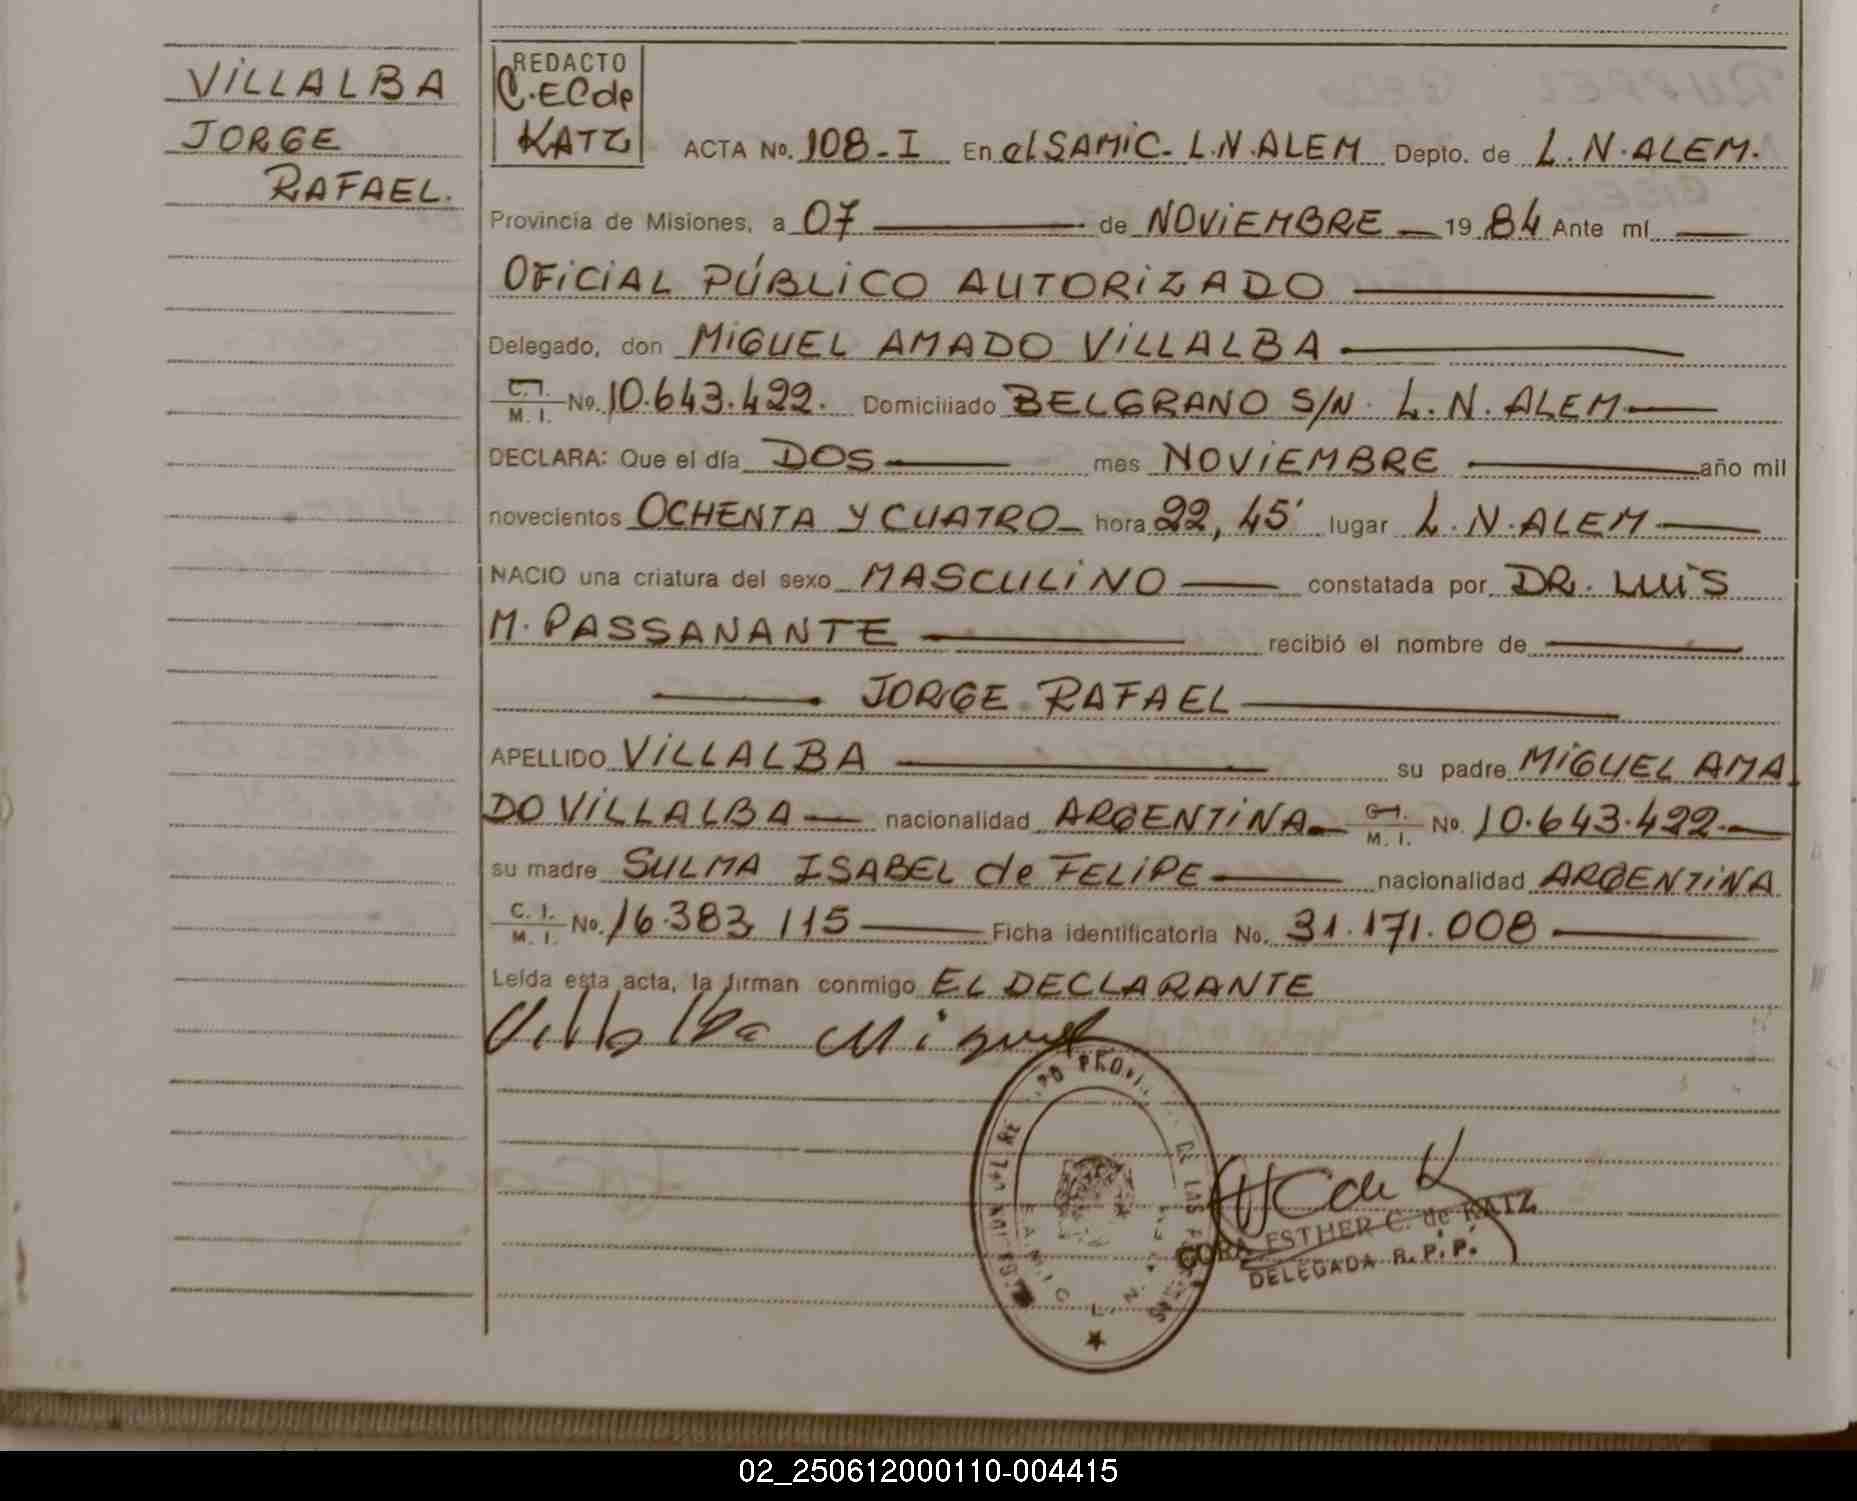 VILLALBA
JORGE
RAFAEL.
REDACTO
C.ECde
KATZ
ACTA No. 108-I En el SAMIC. L.N.ALEM Depto. de L.N.ALEM.
Provincia de Misiones, a 07 de NOVIEMBRE 1984 Ante mí
OFICIAL PÚBLICO AUTORIZADO
Delegado, don MIGUEL AMADO VILLALBA
C.I. M. I. No. 10.643.422. Domiciliado BELGRANO S/N. L.N.ALEM
DECLARA: Que el día DOS mes NOVIEMBRE año mil
novecientos OCHENTA Y CUATRO hora 22,45' lugar L.N.ALEM
NACIO una criatura del sexo MASCULINO constatada por DR. LUIS
M. PASSANANTE recibió el nombre de
JORGE RAFAEL
APELLIDO VILLALBA su padre MIGUEL AMA
DO VILLALBA nacionalidad ARGENTINA C.I. M. I. No. 10.643.422.
su madre SULMA ISABEL de FELIPE nacionalidad ARGENTINA
C. I. M. I. No. 16.383.115 Ficha identificatoria No. 31.171.008
Leída esta acta, la firman conmigo EL DECLARANTE
Villalba Miguel
CORA ESTHER C. de KATZ
DELEGADA R. P. P.
02_250612000110-004415